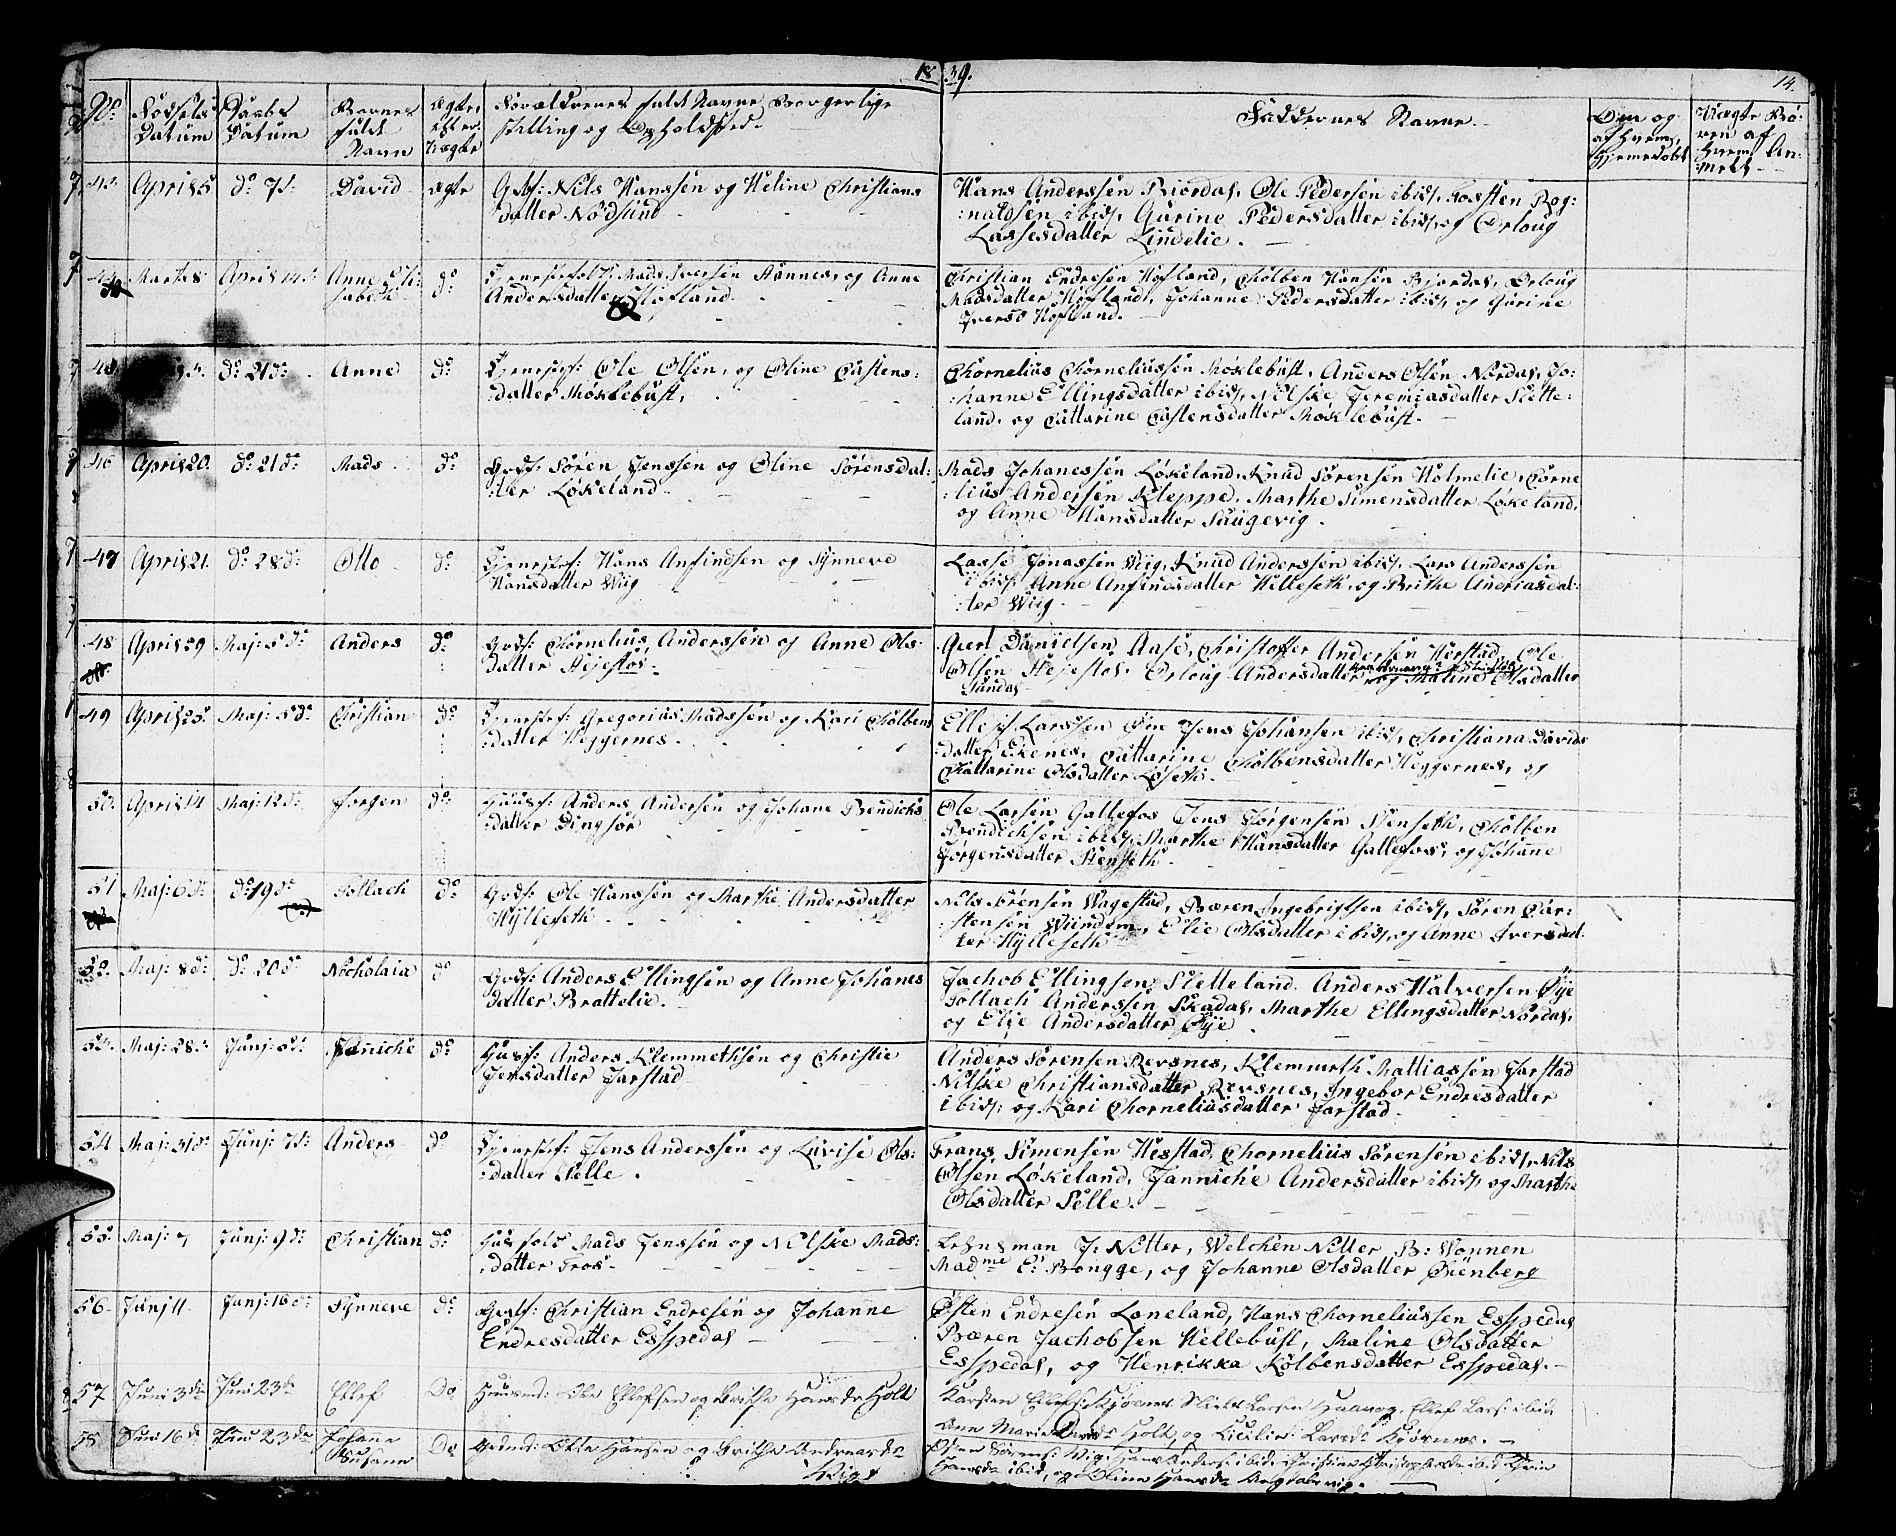 18 39.
14.
No: Fødsels Datum Daabs Datum Barnets fulde Navn Ægte eller Uægte Forældrenes fulde Navne Borgerlige
stilling og Opholdsted.
Faddernes Navne
Om og af hvem hjemmedøbt
Uægte Børn af hvem Anmeldt
April 5 do 7d: David ægte Nils Hanssen og Heline Christians
datter Nødsund
Hans Anderssen Riordal, Ole Pedersen ibid, Tosten Rog:
:naldsen ibid, Gurine Pedersdatter ibid, og Orloug
Lassesdatter Lindelie.
Marts 8 April 14d: Anne Eli:
sabeth do Mads Iversen Hannes, og Anne
Andersdatter Hofland
Christian Endresen Hofland, Cholben Hansen Riordal, Orloug
Madsdatter Hofland, Johanne Pedersdatter ibid, og Gurine
Iversd Hofland.
do 21d: Anne do Ole Olsen, og Oline Castens:
:datter Mosklebust,
Chornelius Chorneliussen Mosklebust, Anders Olsen Nordal, Jo:
:hanne Ellingsdatter ibid, Nilske Jeremiasdatter Slette:
land, og Cattarine Castensdatter Mosklebust.
46 April 20. do 21d: Mads do Gbds: Søren Jenssen og Oline Sørensdat:
:ter Løkeland
Mads Johanessen Løkeland, Knud Sørensen Holmelie, Corne
:lius Andersen Kleppe, Marthe Simensdatter Løkeland,
og Anne Hansdatter Saugevig.
47 April 21. do 28d: Otto do Hans Anfindsen og Synneve
Hansdatter Wiig
Lasse Jonassen Wiig, Knud Anderssen ibid, Lars Anderssen
ibid, Anne Anfindsdatter Helleseth, og Brithe Andriasdat:
:ter Wiig
48 April 29 Maj: 5d: Anders do Gbds: Chornelius Anderssen og Anne Ols
datter Hejestos.
Geert Danielsen Aase, Christoffer Andersen Herstad, Ole
Olsen Hejestos, Orloug Andersdatter og Maline Olsdatter
Sundal
49 April 25. Maj: 5d: Christian do Gregorius Madssen og Kari Cholbens
:datter Heggernes.
Ellef Larssen Øen Jens Johansen ibid, Christiana Davids
:datter Ekenes, Cattarine Cholbensdatter Heggernes, og
Chattarine Olsdatter Løseth.
50. April 14 Maj: 12d: Jorgen do Huusf: Anders Andersen og Johane Bendichs
:datter Dingsør
Ole Larsen Gallefos Jens Jørgensen Stenseth, Cholben
Bendichsen ibid, Marthe Hansdatter Gallefos, og Johane
Jørgensdatter Stenseth.
51 Maj: 6d: do 19d: Tollach do Gbds: Ole Hanssen og Marthe Andersdatter
Hylleseth
Nils Sørensen Wagestad, Bæren Ingebrigtsen ibid, Søren Car:
:stensen Wiindem, Elie Olsdatter ibid, og Anne Iversdat:
ter Hylleseth
52. Maj: 8d: do 20d: Nicholaia do Gbds: Anders Ellingsen og Anne Johanes
datter Brattelie.
Jachob Ellingsen Sletteland. Anders Halversen Øye
Tollach Anderssen Skadal, Marthe Ellingsdatter Nordal,
og Elje Andersdatter Øye.
Maj: 28d: Junj: 5d: Janiche do Husf: Anders Klemmethsen og Christie
Jensdatter Jarstad
Anders Sørensen Revsnes, Klemmeth Mattiassen Jarstad
Nilske Christiansdatter, Revsnes, Ingebor Endresdatter
ibid: og Kari Chorneliusdatter Jarstad.
54 Maj: 31d: Junj: 7d: Anders do Jens Anderssen og Lavise Ols:
:datter Selle.
Frans Simensen Hestad, Chornelius Sørensen ibid, Nils
Olsen Løkeland, Janniche Andersdatter ibid og Marthe
Olsdatter Selle.
55. Maj: 7 Junj: 9d: Christian do Husfolk Mads Jenssen og Nilske Mads:
:datter Fros
Lehnsman J: Nitter, Welchen Nitter B: Wonnen
Madme E: Bongge, og Johanne Olsdatter Øienberg
56. Junj 11 Junj: 16d: Synneve do Gbds: Christian Endresen og Johanne
Endresdatter Esspedal
Østen Endresen Loneland, Hans Chorneliussen Esspedal
Bæren Jachobsen Hellebust, Maline Olsdatter
Esspedal, og Henrikka Kolbensdatter Esspedal.
57 Juni 3die Juni 23de Ellef Do Huusmd: Ole Ellefsen og Brithe Hansdr Holt
Karsten Ellefs: Kjørnes Larsen Haavog, Ellef Lars: ibid
Ane Marie Holt, og Cicilie Larsdr Kjørnes.
58 Juni 16de Juni 23de Johane
Susane Do Grdmd: Otte Hansen og Brithe Andreasdr
Wiig
Østen Sørens: Wiig, Hans Anders: ibid
Hansdr ibid, og Oline Hansdr